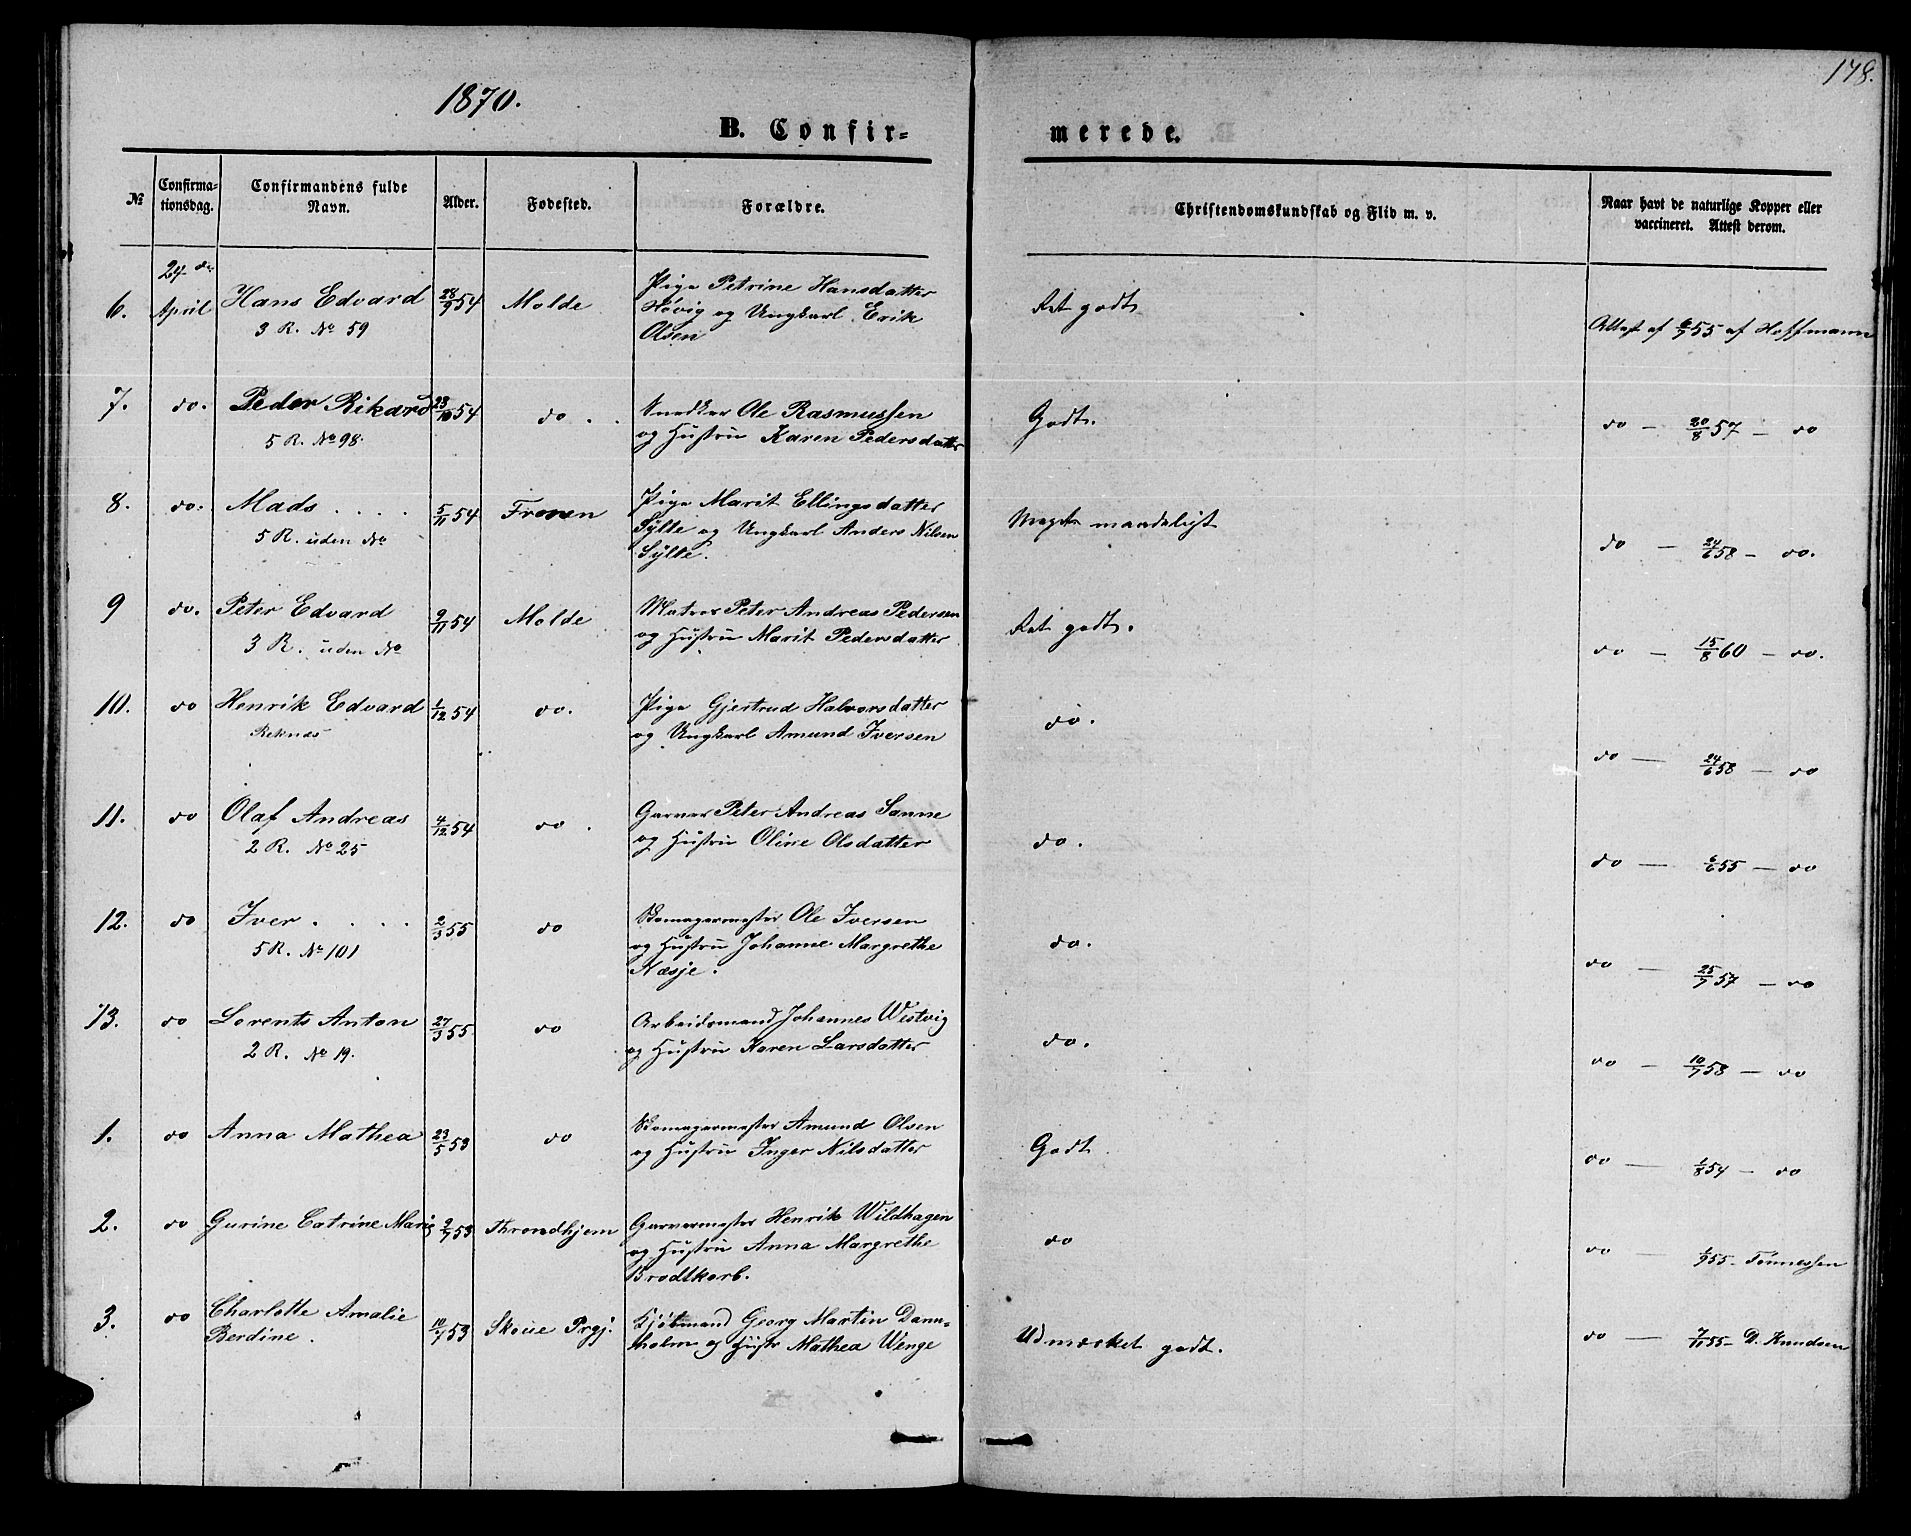 1870.
178.
B. Confir-
merede.
№
Confirma-
tionsdag.
Confirmandens fulde
Navn.
Alder.
Fødested.
Forældre.
Christendomskundskab og Flid m. v.
Naar havt de naturlige Kopper eller
vaccineret. Attest derom.
6. 24de April Hans Edvard 28/9 54 Molde Pige Petrine Hansdatter
Høvig og Ungkarl Erik
Olsen
3 R. No 59
Ret godt Attest af 6/7 55 af Hoffmann
7. do. Peder Rikard 23/10 54 do. Snedker Ole Rasmussen
5 R. No 98. og Hustru Karen Pedersdatter
Godt. do — 20/8 57 — do
8. do. Mads 5/11 54 Fronen Pige Marit Ellingsdatter
5 R. uden No Sylte og Ungkarl Anders Nilsen
Sylte.
Meget maadeligt do — 24/6 58 — do.
9 do. Peter Edvard 9/11 54 Molde Matros Peter Andreas Pedersen
3 R. uden No og Hustru Marit Pedersdatter
Ret godt. do — 15/8 60 — do.
10. do Henrik Edvard 1/12 54 do. Pige Gjertrud Halvorsdatter
Reknæs og Ungkarl Amund Iversen
do. do — 24/6 58 — do
11. do Olaf Andreas 4/12 54 do. Garver Peter Andreas Sanne
2 R. No 25 og Hustru Oline Olsdatter
do. do — 6/6 55 — do
12. do Iver 2/3 55 do Skomagermester Ole Iversen
5 R. No 101 og Hustru Johanne Margrethe
Næsje.
do. do — 25/7 57 — do
13. do Lorents Anton 27/3 55 do Arbeidsmand Johannes Westvig
2 R. No 19. og Hustru Karen Larsdatter
do. do — 10/7 58 — do
1. do Anna Mathea 23/5 53 do Skomagermester Amund Olsen
og Hustru Inger Nilsdatter
Godt. do — 1/8 54 — do
2. do Gurine Catrine Marie 2/7 53 Throndhjem Garvermester Henrik Wildhagen
og Hustru Anna Margrethe
Brodtkorb.
do do — 1/9 55 — Tønnessen
3. do Charlotte Amalie 10/7 53 Skoue Prgj. Kjøbmand Georg Martin Dann-
Berdine. holm og Hustr Mathea Wenge
Udmærket godt. do — 7/11 55 — D. Knudsen